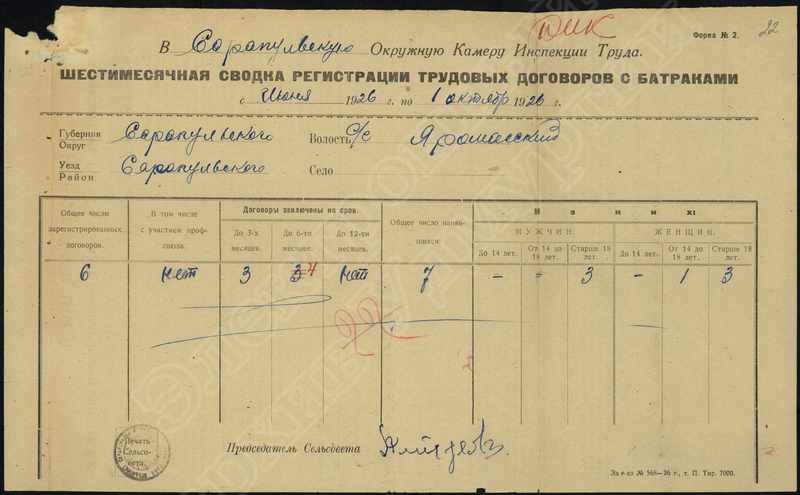 ДИК
Форма № 2.
22
В Сарапульскую Окружную Камеру Инспекции Труда.
ШЕСТИМЕСЯЧНАЯ СВОДКА РЕГИСТРАЦИИ ТРУДОВЫХ ДОГОВОРОВ С БАТРАКАМИ
с Июня 1926 г. по 1 октябр 1926 г.
Губерния
Округ Сарапульского Волость с/с Яромасский
Уезд
Район Сарапульского Село
Общее число зарегистрированных договоров.
В том числе с участием профсоюза.
Договоры заключены на срок.
До 3-х месяцев.
До 6-ти месяцев.
До 12-ти месяцев.
Общее число нанявшихся
Из них
МУЖЧИН.
До 14 лет.
От 14 до 18 лет.
Старше 18 лет.
ЖЕНЩИН.
До 14 лет.
От 14 до 18 лет.
Старше 18 лет.
6 нет 3 3 4 нет 7 - = 3 - 1 3
22
Печать Сельсовета.
Председатель Сельсовета
Заказ № 565—26 г., т. П. Тир. 7000.